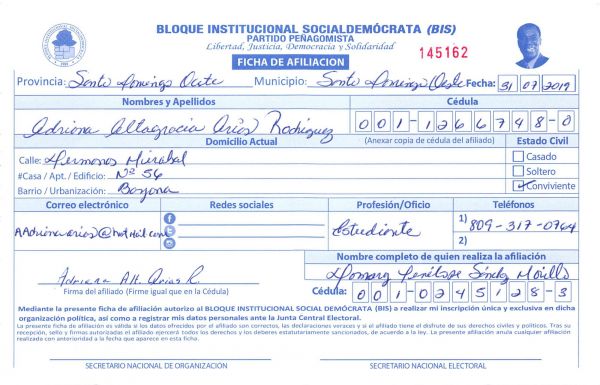 BLOQUE INSTITUCIONAL SOCIALDEMÓCRATA (BIS)
PARTIDO PEÑAGOMISTA
Libertad, Justicia, Democracia y Solidaridad
145162
FICHA DE AFILIACION
Provincia: Santo Domingo Oeste Municipio: Santo Domingo Oeste Fecha: 31 07 2019
Nombres y Apellidos Cédula
Adriana Altagracia Arias Rodriguez 001-1266748-0
Domicilio Actual (Anexar copia de cédula del afiliado) Estado Civil
Calle: Hermanas Mirabal Casado
#Casa / Apt. / Edificio: Nº 56 Soltero
Barrio / Urbanización: Bayona Conviviente
Correo electrónico Redes sociales Profesión/Oficio Teléfonos
AAdrianaarias@hotmail.com Estudiante 1) 809-317-0764
2)
Nombre completo de quien realiza la afiliación
Adriana Alt. Arias R. Sánchez
Firma del afiliado (Firme igual que en la Cédula) Cédula: 001-0245128-3
Mediante la presente ficha de afiliación autorizo al BLOQUE INSTITUCIONAL SOCIAL DEMÓCRATA (BIS) a realizar mi inscripción única y exclusiva en dicha
organización política, así como a registrar mis datos personales ante la Junta Central Electoral.
La presente ficha de afiliación es válida si los datos ofrecidos por el afiliado son correctos, las declaraciones veraces y si el afiliado tiene el disfrute de sus derechos civiles y políticos. Tras su
recepción, sello y firmas autorizadas el afiliado ejercerá todos los derechos y los deberes estatutariamente sancionados, de acuerdo a la ley. La presente afiliación anula cualquier afiliación
realizada con anterioridad a la fecha que aparece en esta ficha.
SECRETARIO NACIONAL DE ORGANIZACIÓN SECRETARIO NACIONAL ELECTORAL